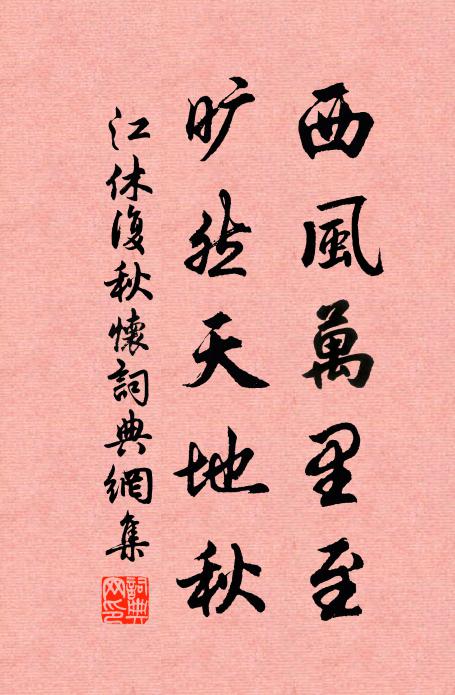 西風萬里至
旷然天地秋
江休復秋懷詞典網集
詞典网印